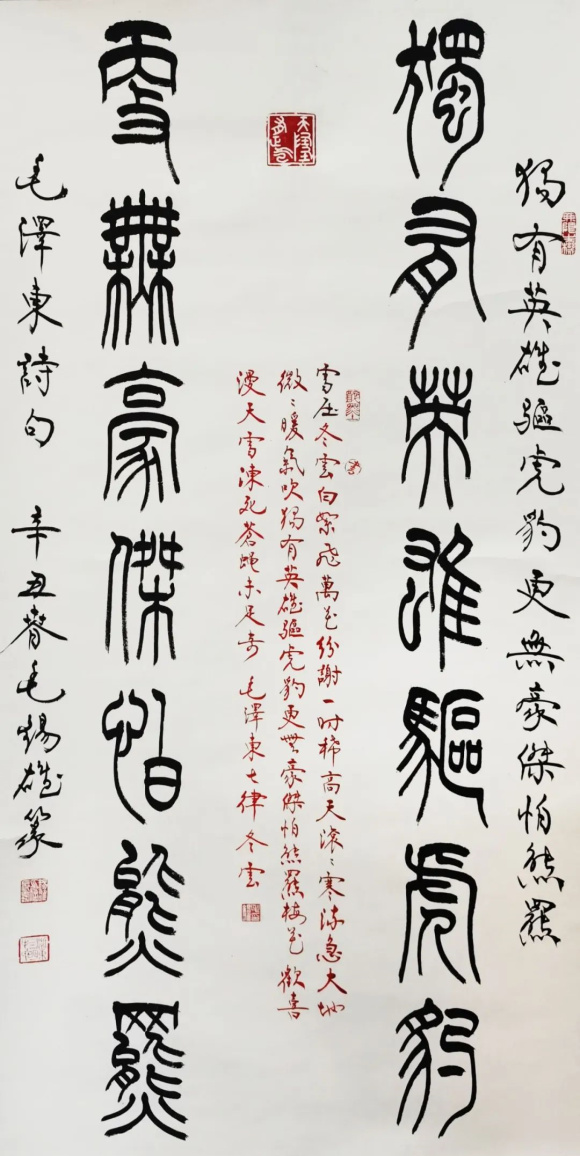 獨有英雄驅虎豹更無豪傑怕熊羆
獨有英雄驅虎豹
雪压冬雲白絮飛萬花紛謝一时稀高天滾〻寒流急大地
微〻暖氣吹獨有英雄驅虎豹更無豪傑怕熊羆梅花歡喜
漫天雪凍死蒼蠅未足奇 毛澤東七律冬雲
更無豪傑怕熊羆
毛澤東詩句 辛丑春毛錫雄篆